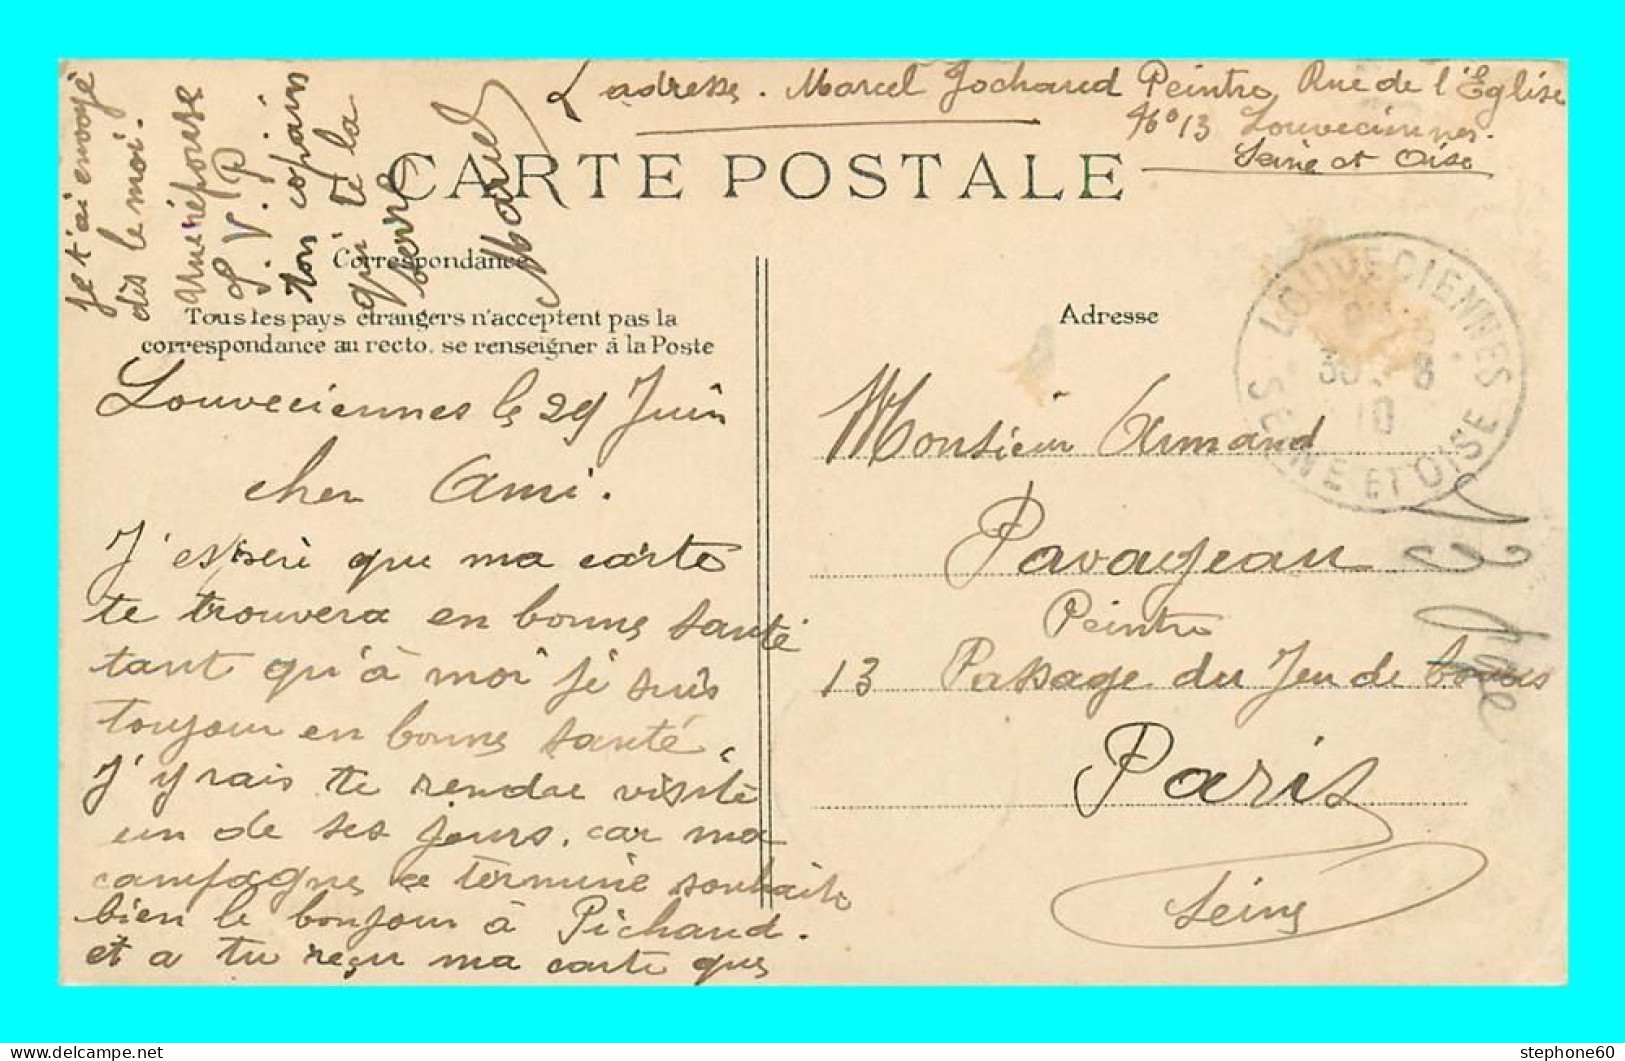 L'adresse. Marcel Jochaud Peintre Rue de l'Eglise
N° 13 Louveciennes.
Seine et Oise
CARTE POSTALE
Correspondance
Tous les pays étrangers n'acceptent pas la
correspondance au recto. se renseigner à la Poste
Adresse
LOUVECIENNES
30 - 6
10
SEINE ET OISE
Louveciennes le 29 Juin
cher Ami.
J'esperè que ma carte
te trouvera en bonne santé
tant qu'à moi je suis
toujour en bonne santé.
J'yrais te rendre visite
un de ses jours. car ma
campagne ce termine souhaite
bien le bonjour à Pichaud.
et a tu reçu ma carte que
je t'ai envoyé
dès le moi.
une réponse
S.V.P.
ton copain
qui te la
serre
Marcel
Monsieur Armand
Pavageau
Peintre
13 Passage du Jeu de boules
Paris
Seine
stephone60